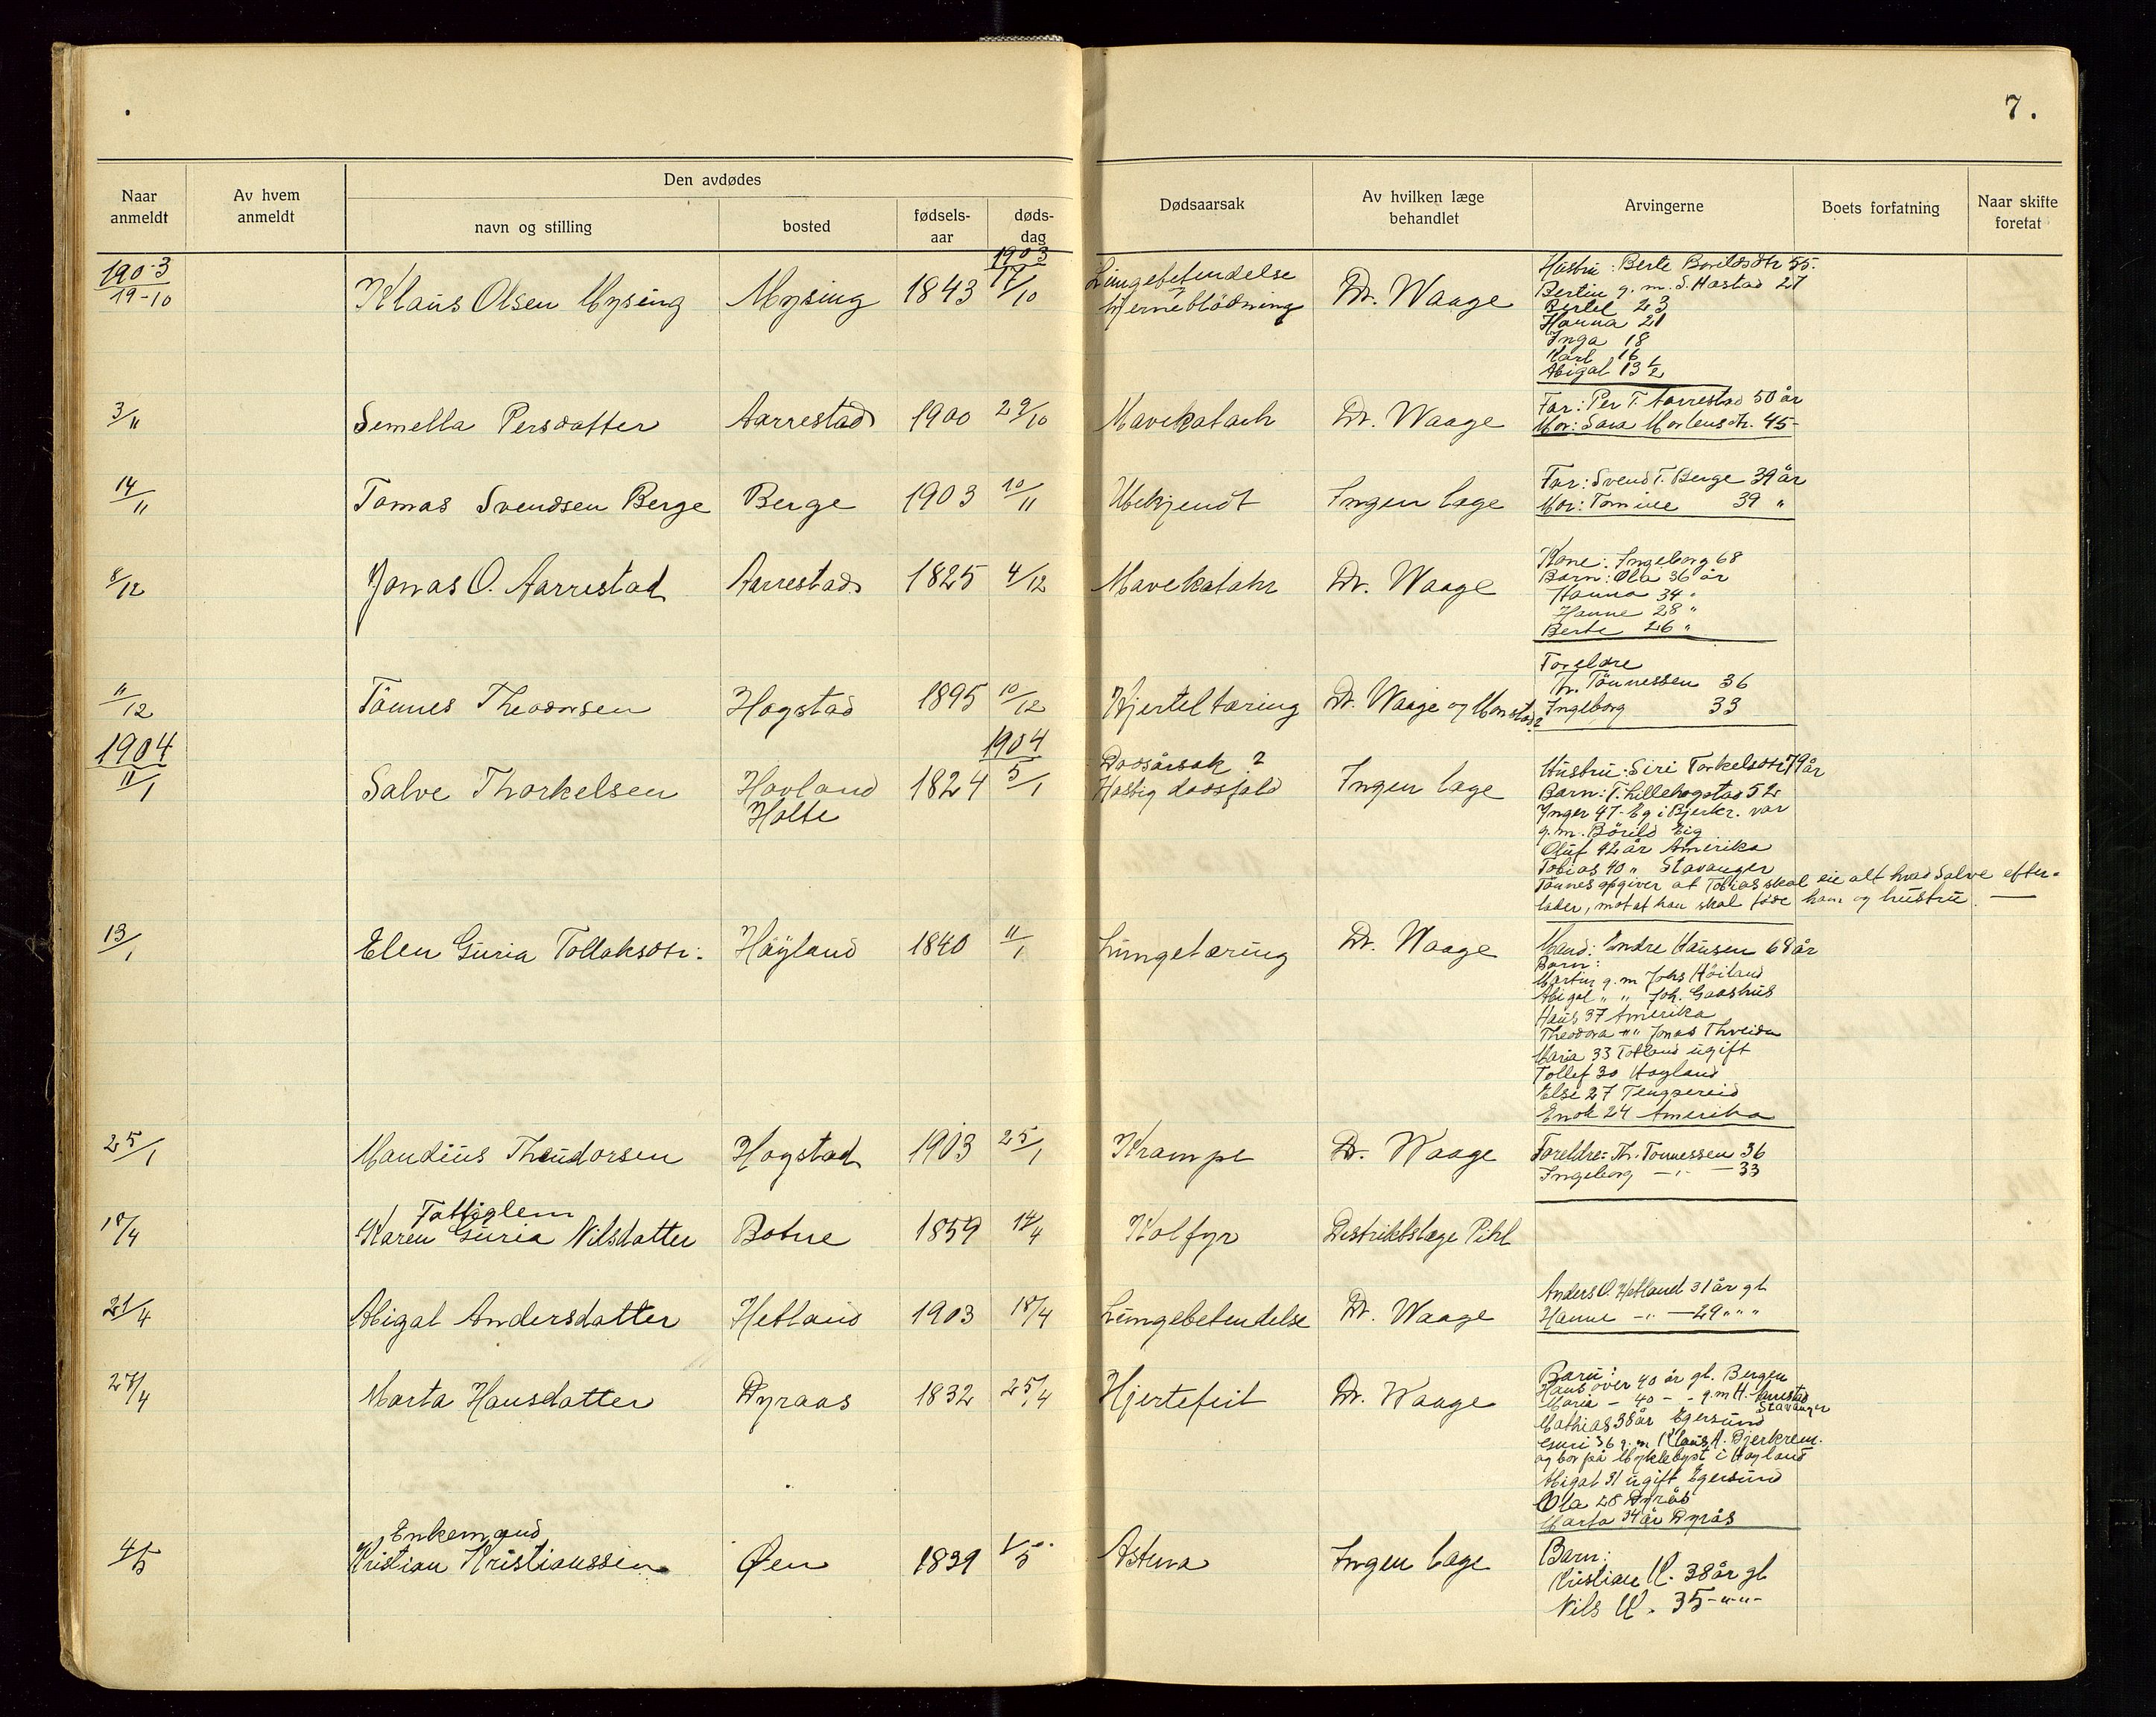 7.
Naar anmeldt
Av hvem anmeldt
Den avdødes
navn og stilling
bosted
fødsels-aar
døds-dag
Dødsaarsak
Av hvilken læge behandlet
Arvingerne
Boets forfatning
Naar skifte foretat
1903 1903
19-10 Klaus Olsen Mysing Mysing 1843 17/10 Lungebetendelse Dr. Waage
Hjerneblödning
Hustru: Berte Borildsdtr 55.
Bertin g. m. S. Hæstad 27
Bertel 23
Hanna 21
Inga 18
Karl 16
Abigal 13 1/2
3/11 Semella Persdatter Aarrestad 1900 29/10 Mavekatarh Dr. Waage
Far: Per T. Aarrestad 50 år
Mor: Sara Mortensdtr. 45-
14/11 Tomas Svendsen Berge Berge 1903 10/11 Ubekjendt Ingen læge
Far: Svend T. Berge 39 år
Mor: Tomine 39 "
8/12 Jonas O. Aarrestad Aarrestad 1825 4/12 Mavekatahr Dr. Waage
Kone: Ingeborg 68
Barn: Ola 36 år
Hanna 34 "
Hanne 28 "
Berte 26 "
11/12 Tönnes Theodorsen Hogstad 1895 10/12 Kjerteltæring Dr. Waage og Monstad?
Foreldre
Th. Tönnessen 36
Ingeborg 33
1904 1904
11/1 Salve Thorkelsen Hovland 1824 5/1 Dødsårsak ? Ingen læge
Holte Hastig dødsfald
Hustru: Siri Torkelsdtr 79 år
Barn: T. Lillehogstad 52
Inger 47- Eg i Bjerkr. var
g. m. Börild Eig
Oluf 42 år Amerika
Tobias 40 " Stavanger
Tönnes opgiver at Tobias skal eie alt hvad Salve efter-
lader, mot at han skal föde ham og hustru. —
13/1 Elen Guria Tollaksdtr: Höyland 1840 11/1 Lungetæring Dr. Waage
Mand: Endre Hansen 68 år
Barn:
Martin g. m Johs Höiland
Abigal " " Joh. Gaashus
Hans 37 Amerika
Theodora " " Jonas Thveiden
Maria 33 Totland ugift
Tollef 30 Høyland
Else 27 Tengsereid
Enok 24 Amerika
25/1 Mandius Theodorsen Hogstad 1903 25/1 Krampe Dr. Waage
Foreldre: Th. Tönnessen 36
Ingeborg -"- 33
Fattiglem
18/4 Karen Guria Nilsdatter Botne 1859 14/4 Kolfyr Distriktslæge Pihl
21/4 Abigal Andersdatter Hetland 1903 18/4 Lungebetendelse Dr. Waage
Anders O. Hetland 31 år gl
Hanne -"- 29 " " "
27/4 Marta Hansdatter Dyraas 1832 25/4 Hjertefeil Dr. Waage
Barn:
Hans over 40 år gl. Bergen
Maria - 40 - - g. m H. Aarrestad
Stavanger
Mathias 38 år Egersund
Guri 36 g. m Klaus A. Bjerkrem.
og bor på Myklebyst i Høyland
Abigal 31 ugift Egersund
Ola 28 Dyrås
Marta 34 år Dyrås
Enkemand
4/5 Kristian Kristianssen Øen 1839 1/5 Astma Ingen læge
Barn:
Kristian K. 38 år gl
Nils K. 35 -"-"-